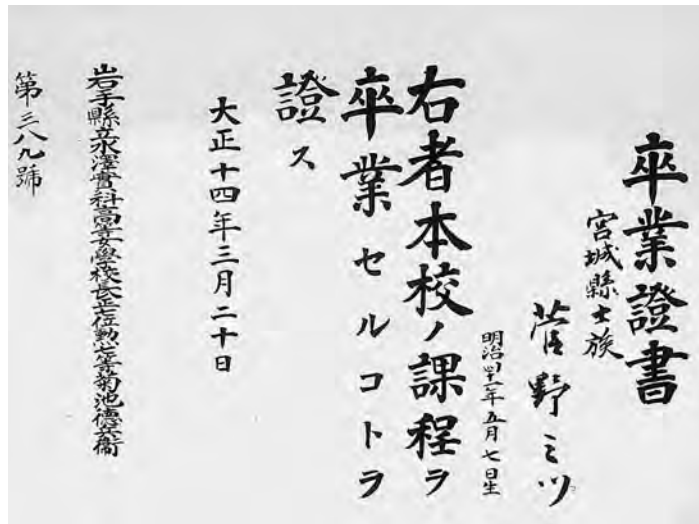 卒業證書
宮城縣士族
菅野ミツ
明治四十一年五月七日生
右者本校ノ課程ヲ
卒業セルコトヲ
證ス
大正十四年三月二十日
岩手縣立水澤實科高等女學校長正七位勳七等菊池德兵衞
第三八九號